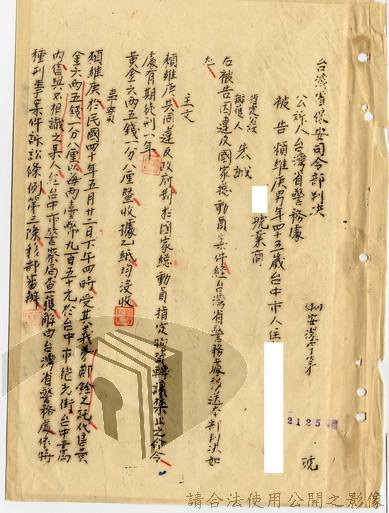 台灣省保安司令部判決
(40)安潔字第 2125 號
公訴人台灣省警務處
被告賴維庚男年四十五歲台中市人住
號業商
指定公設辯護人朱誠
右被告因違反國家總動員案件經台灣省警務處移送本部判決如
主文
賴維庚共同違反政府對於國家總動員指定物資轉讓禁止之命令
處有期徒刑一年
黃金六両五錢一分八厘暨收據乙紙均沒收
事實
賴維庚於民國四十年五月廿二日下午四時受其義弟鄭銓之託代售黃
金六両五錢一分八厘以每両臺幣九百五十元於台中市繼光街台中書局
內售與不相識之某人經台中市警察局查獲解由台灣省警務處依特
種刑事案件訴訟條例第三條移部審辦
請合法使用公開之影像